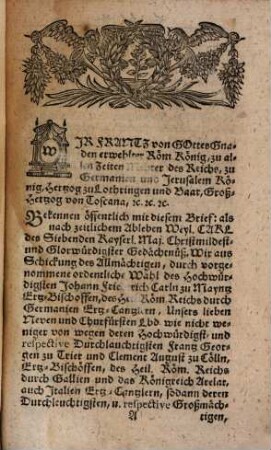 WIR FRANTZ von GOttes Gna-
den erwehlter Röm König, zu al-
len Zeiten Mehrer des Reichs, zu
Germanien und Jerusalem Kö-
nig, Hertzog zu Lothringen und Baar, Groß-
Hertzog von Toscana, ꝛc. ꝛc. ꝛc.
Bekennen öffentlich mit diesem Brief: als
nach zeitlichem Ableben Weyl. CARL
des Siebenden Kayserl. Maj. Christmildest-
und Glorwürdigster Gedächtnüß, Wir aus
Schickung des Allmächtigen, durch vorge-
nommene ordentliche Wahl des Hochwür-
digsten Johann Friedrich Carln zu Mayntz
Ertz-Bischoffen, des Heil. Röm Reichs durch
Germanien Ertz-Cantzlern, Unsers lieben
Neven und Churfürsten Lbd. wie nicht we-
niger von wegen deren Hochwürdigst- und
respective Durchlauchtigsten Frantz Geor-
gen zu Trier und Clement August zu Cölln,
Ertz-Bischöffen, des Heil. Röm. Reichs
durch Gallien und das Königreich Arelat,
auch Italien Ertz-Cantzlern, sodann deren
Durchleuchtigsten, u. respective Großmäch-
A tigen,